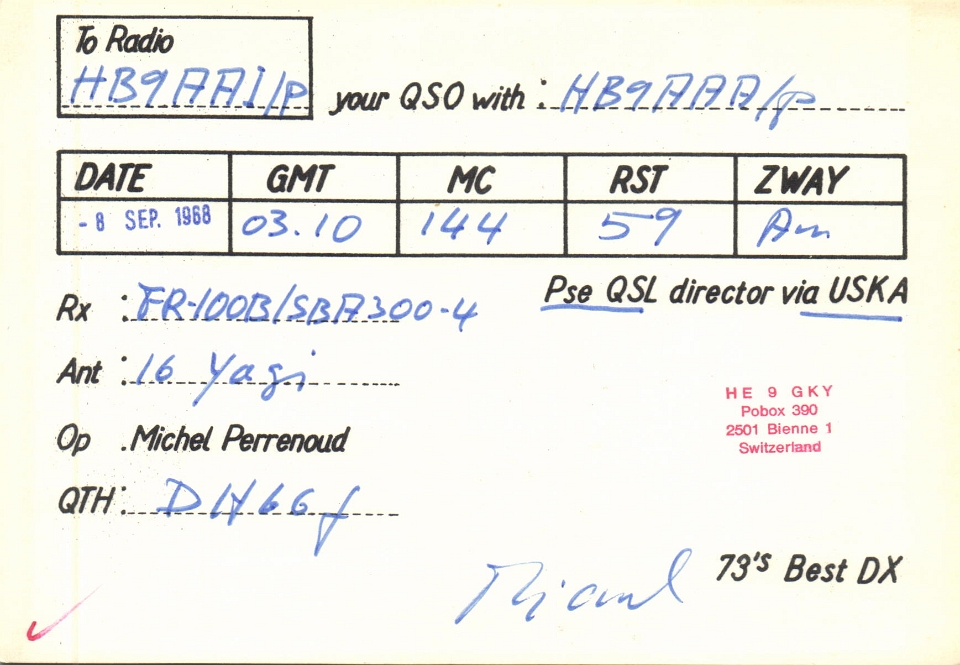 To Radio
HB9AAI/P your QSO with: HB9AAA/p
DATE GMT MC RST ZWAY
- 8 SEP. 1968 03.10 144 59 Am
Pse QSL director via USKA
Rx : FR-100B/SBA300-4
Ant : 16 Yagi
Op . Michel Perrenoud
QTH : DH66f
HE 9 GKY
Pobox 390
2501 Bienne 1
Switzerland
73's Best DX